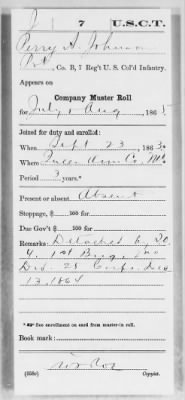 J 7 U.S.C.T.
Perry A. Johnson
Pvt., Co. B, 7 Reg't U. S. Col'd Infantry.
Appears on
Company Muster Roll
for July & Aug, 1865.
Joined for duty and enrolled:
When Sept 23, 1863.
Where Queen Ann Co. Md
Period 3 years.*
Present or absent Absent
Stoppage, $ 100 for
Due Gov't $ 100 for
Remarks: Detached
4. 1st Brig. 2nd
Div. 25 Corps. Dec
13. 1864
* See enrollment on card from muster-in roll.
Book mark:
(358c) Copyist.